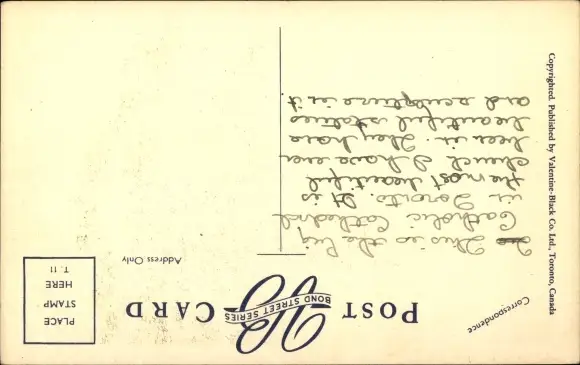 Correspondence
POST CARD
BOND STREET SERIES
PLACE
STAMP
HERE
T. 11
Address Only
This is the big
Catholic Cathedral
in Toronto. It is
the most beautiful
church I have ever
been in. They have
beautiful statues
and sculpture in it
Copyrighted. Published by Valentine-Black Co. Ltd., Toronto, Canada